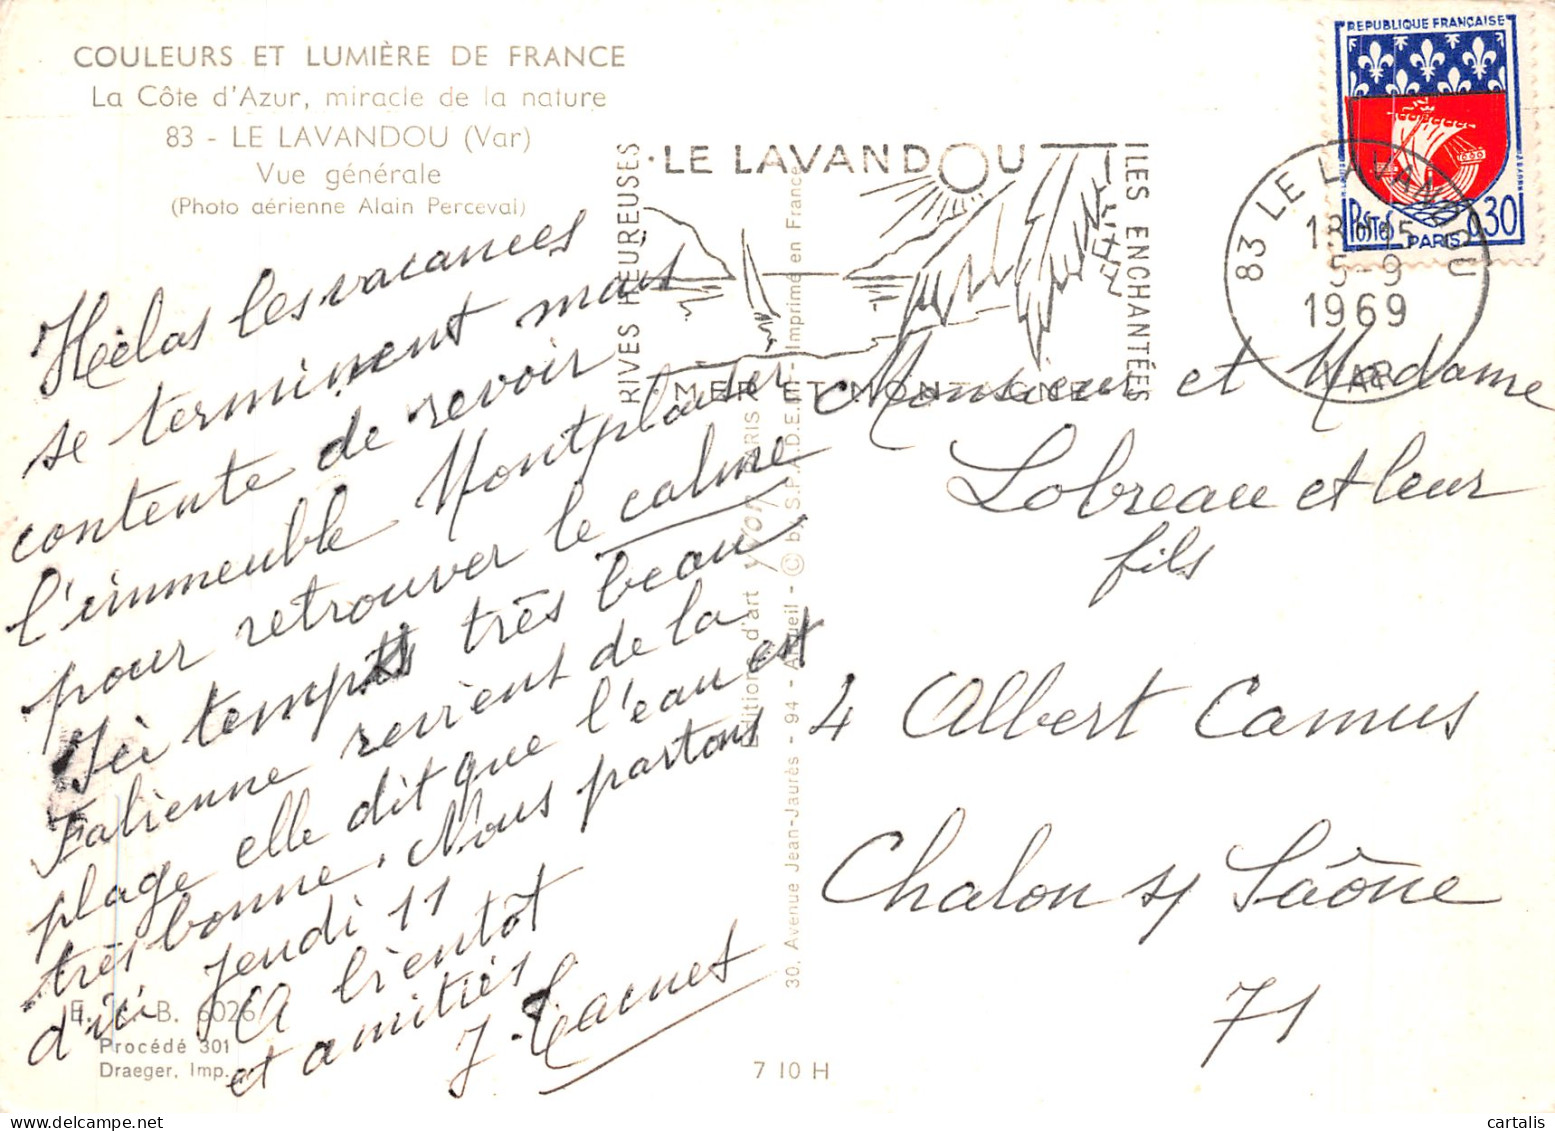 COULEURS ET LUMIÈRE DE FRANCE
La Côte d'Azur, miracle de la nature
83 - LE LAVANDOU (Var)
Vue générale
(Photo aérienne Alain Perceval)
Hélas les vacances
se terminent mais
contente de revoir
l'immeuble Montplaisir
pour retrouver le calme
Ici temps très beau
Fabienne revient de la
plage elle dit que l'eau est
très bonne. Nous partons
d'ici Jeudi 11
A bientôt
et amitiés
E. B. 6026
Procédé 301
Draeger, Imp.
7 10 H
Editions d'art YVON PARIS
30, Avenue Jean-Jaurès - 94 - Arcueil - © by S.P.A.D.E.M. - Imprimé en France
RIVES HEUREUSES
LE LAVANDOU
ILES ENCHANTÉES
MER ET MONTAGNE
REPUBLIQUE FRANÇAISE
POSTES
0,30
PARIS
83 LE LAVANDOU
5-9
1969
VAR
Monsieur et Madame
Lobreau et leur
fils
4 Albert Camus
Chalon s/ Saône
71
cartalis